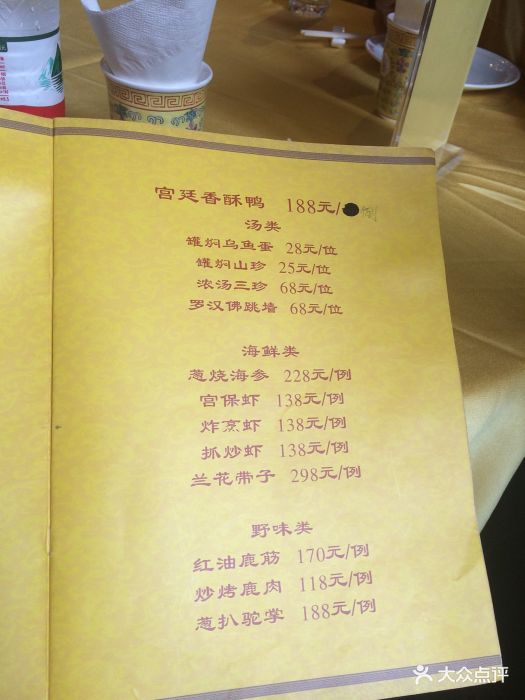 宫廷香酥鸭 188元/例
汤类
罐焖乌鱼蛋 28元/位
罐焖山珍 25元/位
浓汤三珍 68元/位
罗汉佛跳墙 68元/位
海鲜类
葱烧海参 228元/例
宫保虾 138元/例
炸烹虾 138元/例
抓炒虾 138元/例
兰花带子 298元/例
野味类
红油鹿筋 170元/例
炒烤鹿肉 118元/例
葱扒驼掌 188元/例
大众点评